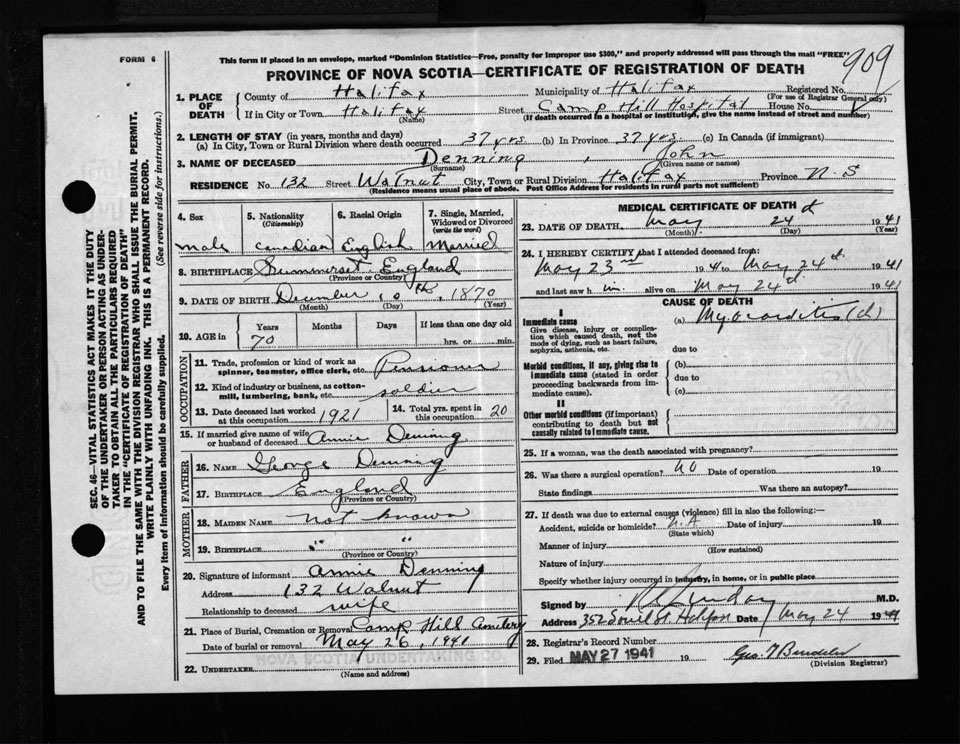 FORM 6
This form if placed in an envelope, marked "Dominion Statistics—Free, penalty for improper use $300," and properly addressed will pass through the mail "FREE"
909
PROVINCE OF NOVA SCOTIA—CERTIFICATE OF REGISTRATION OF DEATH
1. PLACE OF DEATH
County of Halifax Municipality of Halifax Registered No.
(For use of Registrar General only)
If in City or Town Halifax Street Camp Hill Hospital House No.
(Name) (If death occurred in a hospital or institution, give the name instead of street and number)
2. LENGTH OF STAY (in years, months and days)
(a) In City, Town or Rural Division where death occurred 37 yrs (b) In Province 37 yrs (c) In Canada (if immigrant)
3. NAME OF DECEASED Denning, John
(Surname) (Given name or names)
RESIDENCE No. 132 Street Walnut City, Town or Rural Division Halifax Province N. S
(Residence means usual place of abode. Post Office Address for residents in rural parts not sufficient)
4. Sex
male
5. Nationality (Citizenship)
Canadian
6. Racial Origin
English
7. Single, Married, Widowed or Divorced (write the word)
Married
8. BIRTHPLACE Summerset England
(Province or Country)
9. DATE OF BIRTH December 1870
(Month) (Day) (Year)
10. AGE in Years Months Days If less than one day old
70 hrs. or min.
OCCUPATION
11. Trade, profession or kind of work as spinner, teamster, office clerk, etc. Pensioner
12. Kind of industry or business, as cotton-mill, lumbering, bank, etc. soldier
13. Date deceased last worked at this occupation 1921
14. Total yrs. spent in this occupation 20
15. If married give name of wife or husband of deceased Annie Denning
FATHER
16. NAME George Denning
17. BIRTHPLACE England
(Province or Country)
MOTHER
18. MAIDEN NAME not known
19. BIRTHPLACE " "
(Province or Country)
20. Signature of informant Annie Denning
Address 132 Walnut
Relationship to deceased wife
21. Place of Burial, Cremation or Removal Camp Hill Cemetery
Date of burial or removal May 26, 1941
22. UNDERTAKER NOVA SCOTIA UNDERTAKING CO
(Name and address)
MEDICAL CERTIFICATE OF DEATH
23. DATE OF DEATH May 24 1941
(Month) (Day) (Year)
24. I HEREBY CERTIFY that I attended deceased from:
May 23rd 1941 to May 24th 1941
and last saw him alive on May 24th 1941
CAUSE OF DEATH
I
Immediate cause (a) Myocarditis (ch)
Give disease, injury or complication which caused death, not the mode of dying, such as heart failure, asphyxia, asthenia, etc.
due to
Morbid conditions, if any, giving rise to immediate cause (stated in order proceeding backwards from immediate cause).
(b)
due to
(c)
II
Other morbid conditions (if important) contributing to death but not causally related to immediate cause.
25. If a woman, was the death associated with pregnancy?
26. Was there a surgical operation? no Date of operation 19
State findings Was there an autopsy?
27. If death was due to external causes (violence) fill in also the following:—
Accident, suicide or homicide? N.A Date of injury 19
(State which)
Manner of injury
(How sustained)
Nature of injury
Specify whether injury occurred in industry, in home, or in public place
Signed by M.D.
Address Halifax Date May 24 1941
28. Registrar's Record Number
29. Filed MAY 27 1941 19
(Division Registrar)
SEC. 46—VITAL STATISTICS ACT MAKES IT THE DUTY
OF THE UNDERTAKER OR PERSON ACTING AS UNDERTAKER
TO OBTAIN ALL THE PARTICULARS REQUIRED
IN THE "CERTIFICATE OF REGISTRATION OF DEATH"
AND TO FILE THE SAME WITH THE DIVISION REGISTRAR WHO SHALL ISSUE THE BURIAL PERMIT.
WRITE PLAINLY WITH UNFADING INK. THIS IS A PERMANENT RECORD.
Every item of information should be carefully supplied. (See reverse side for instructions.)